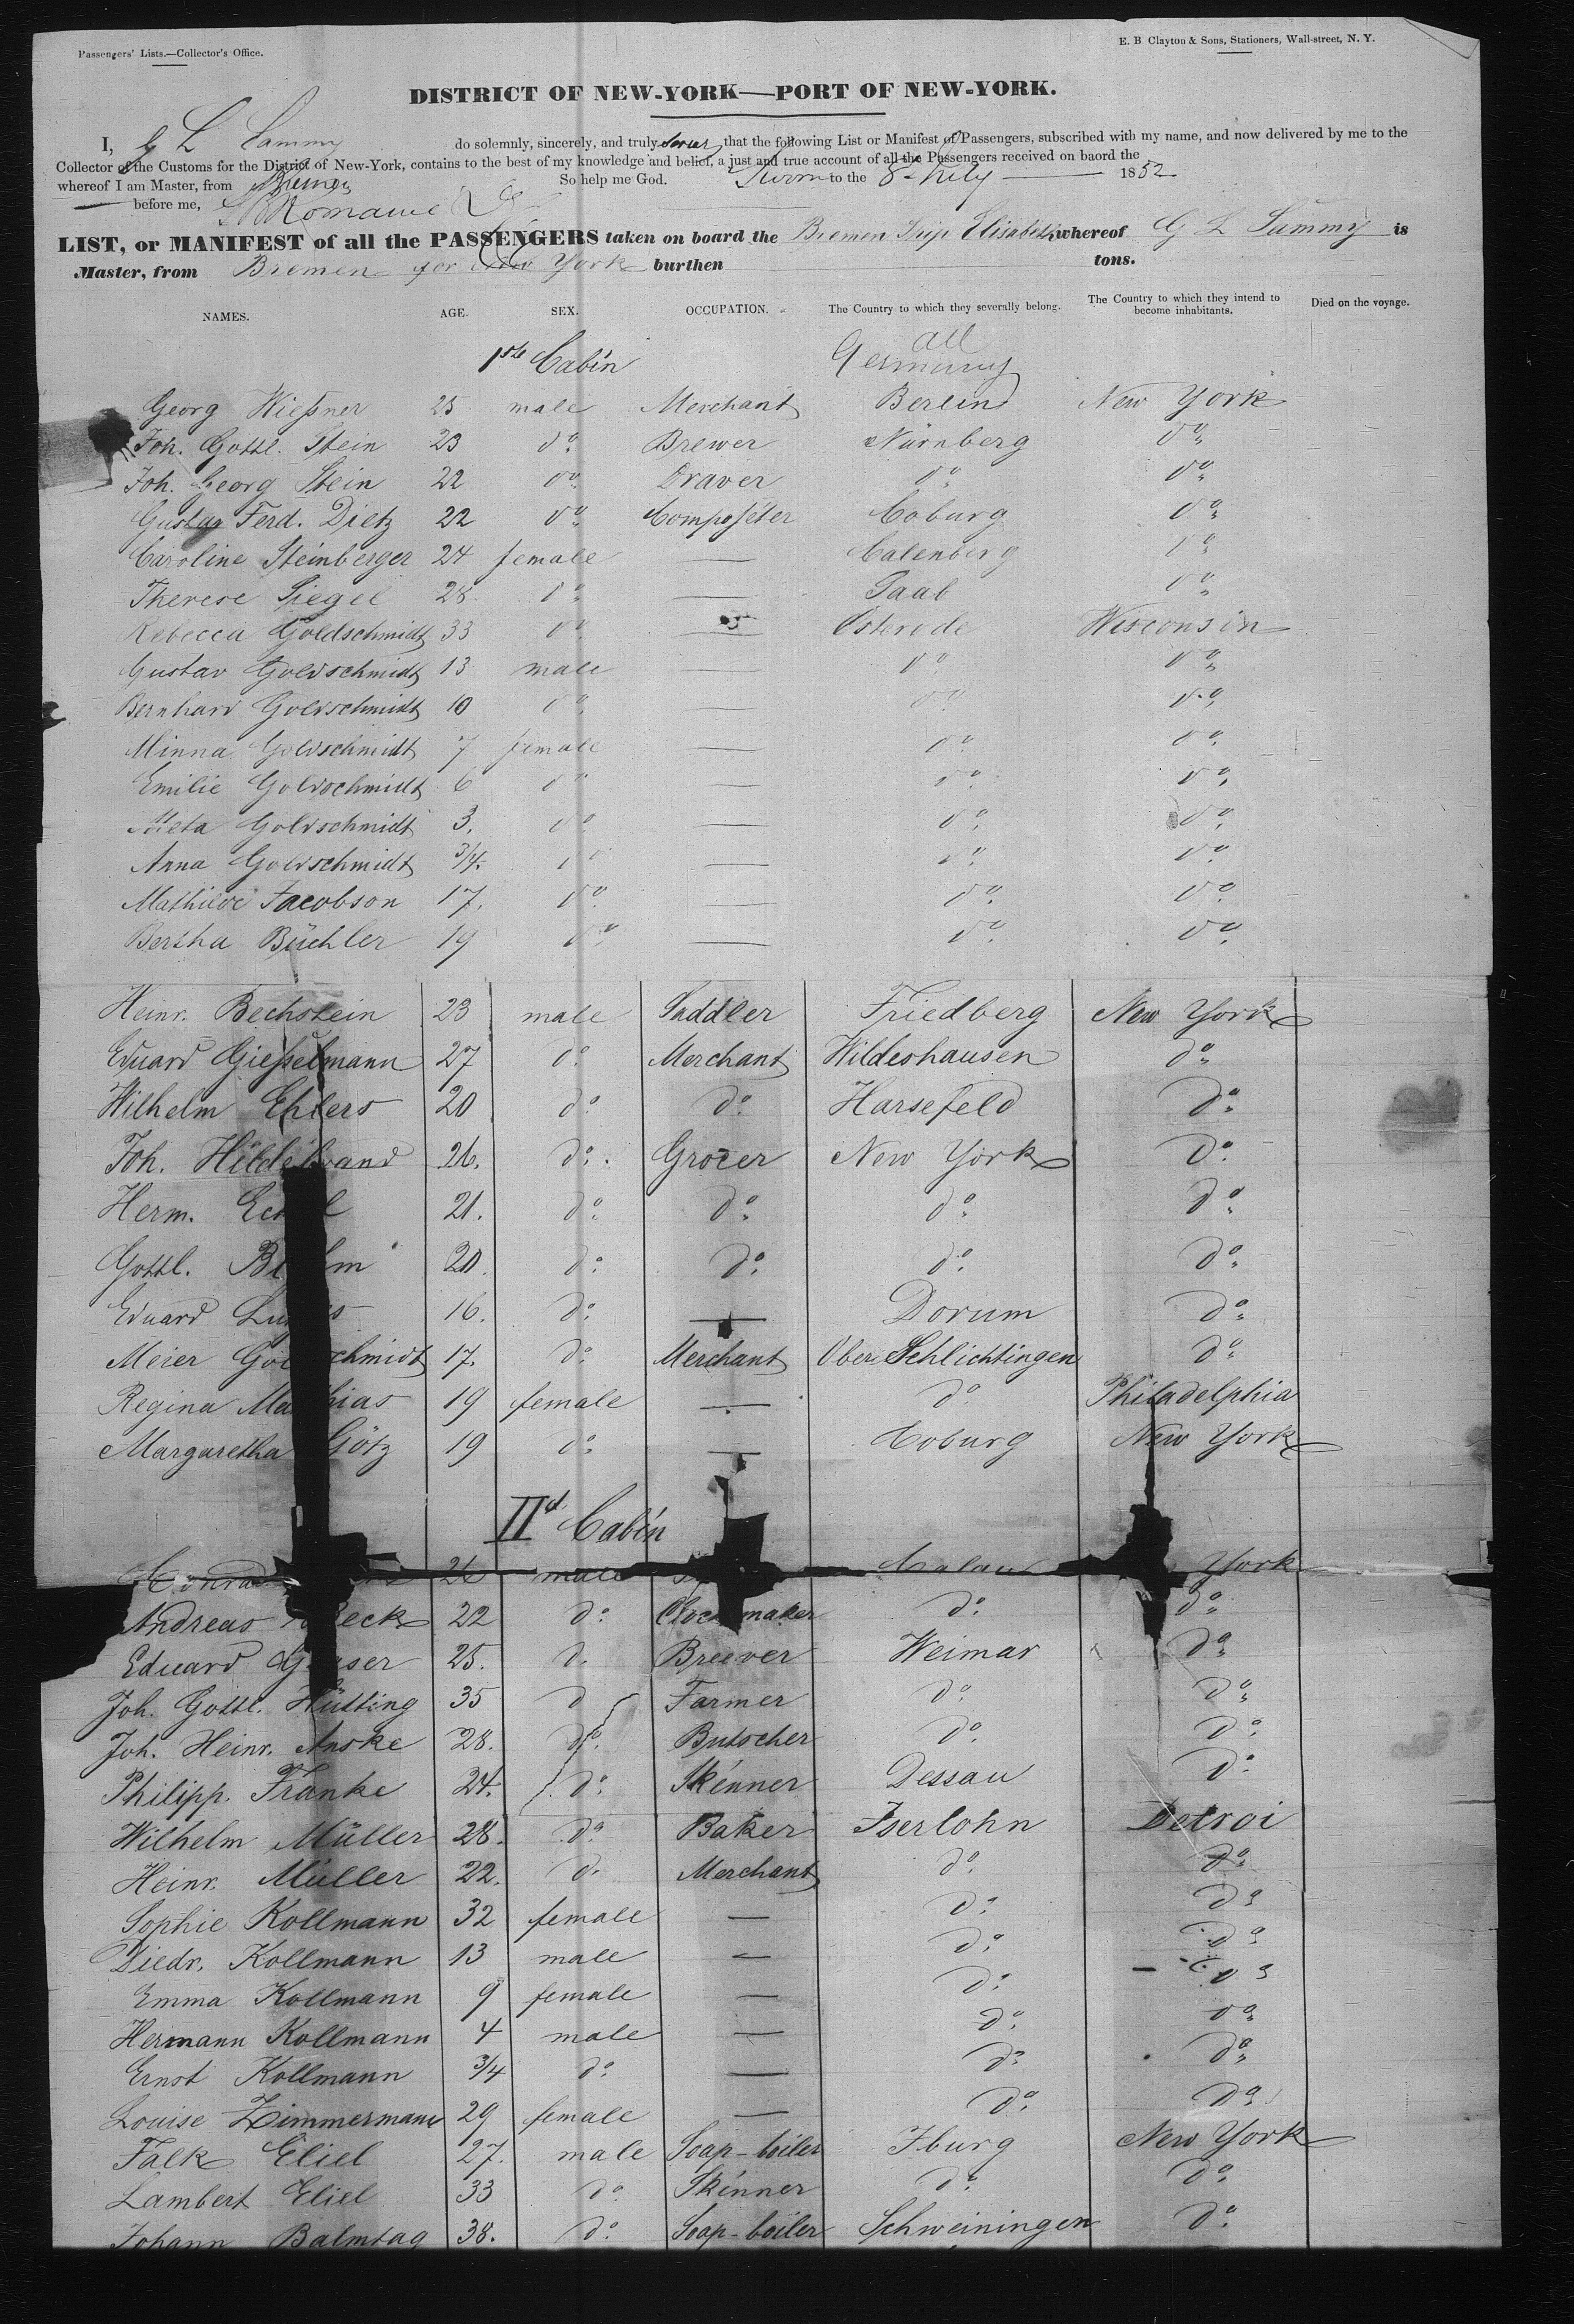 Passengers' Lists.—Collector's Office.
E. B Clayton & Sons, Stationers, Wall-street, N. Y.
DISTRICT OF NEW-YORK—PORT OF NEW-YORK.
I, G L Sammy do solemnly, sincerely, and truly swear that the following List or Manifest of Passengers, subscribed with my name, and now delivered by me to the
Collector of the Customs for the District of New-York, contains to the best of my knowledge and belief, a just and true account of all the Passengers received on baord the
whereof I am Master, from Bremen So help me God. Sworn to the 8 July 1852
before me, Romaine
LIST, or MANIFEST of all the PASSENGERS taken on board the Bremen Ship Elisabeth whereof G L Sammy is
Master, from Bremen for New York burthen tons.
NAMES. AGE. SEX. OCCUPATION. The Country to which they severally belong. The Country to which they intend to become inhabitants. Died on the voyage.
1ste Cabin all Germany
Georg Wießner 25 male Merchant Berlin New York
Joh. Gottl. Stein 23 do Brewer Nürnberg do
Joh. Georg Stein 22 do Draver do do
Gustav Ferd. Dietz 22 do Composéter Coburg do
Caroline Steinberger 24 female — Calenberg do
Therese Siegel 28 do — Saab do
Rebecca Goldschmidt 33 do — Osterode Wisconsin
Gustav Goldschmidt 13 male — do do
Bernhard Goldschmidt 10 do — do do
Minna Goldschmidt 7 female — do do
Emilie Goldschmidt 6 do — do do
Meta Goldschmidt 3. do — do do
Anna Goldschmidt 3/4. do — do do
Mathilde Jacobson 17. do — do do
Bertha Büchler 19 do — do do
Heinr. Bechstein 23 male Saddler Friedberg New York
Eduard Gießelmann 27 do Merchant Wildeshausen do
Wilhelm Ehlers 20 do do Harsefeld do
Joh. Hildebrand 26. do Grozer New York do
Herm. 21. do do do do
Gottl. 20. do do do do
Eduard 16. do — Dorum do
Meier Goldschmidt 17. do Merchant Ober Schlichtingen do
Regina Mathias 19 female — do Philadelphia
Margaretha Götz 19 do — Coburg New York
IId Cabin
Conrad 26 male Calau York
Andreas 22 do Clockmaker do do
Eduard 25. do Breever Weimar do
Joh. Gottl. Hütting 35 do Farmer do do
Joh. Heinr. Anske 28. do Butscher do do
Philipp. Franke 24. do Skénner Dessau do
Wilhelm Müller 28. do Baker Iserlohn Detroi
Heinr. Müller 22. do Merchant do do
Sophie Kollmann 32 female — do do
Diedr. Kollmann 13 male — do do
Emma Kollmann 9 female — do do
Hermann Kollmann 4 male — do do
Ernst Kollmann 3/4 do — do do
Louise Zimmermann 29 female — do do
Falk Eliel 27. male Soap-boiler Iburg New York
Lambert Eliel 33 do Skénner do do
Johann Balmtag 38. do Soap-boiler Schweiningen do